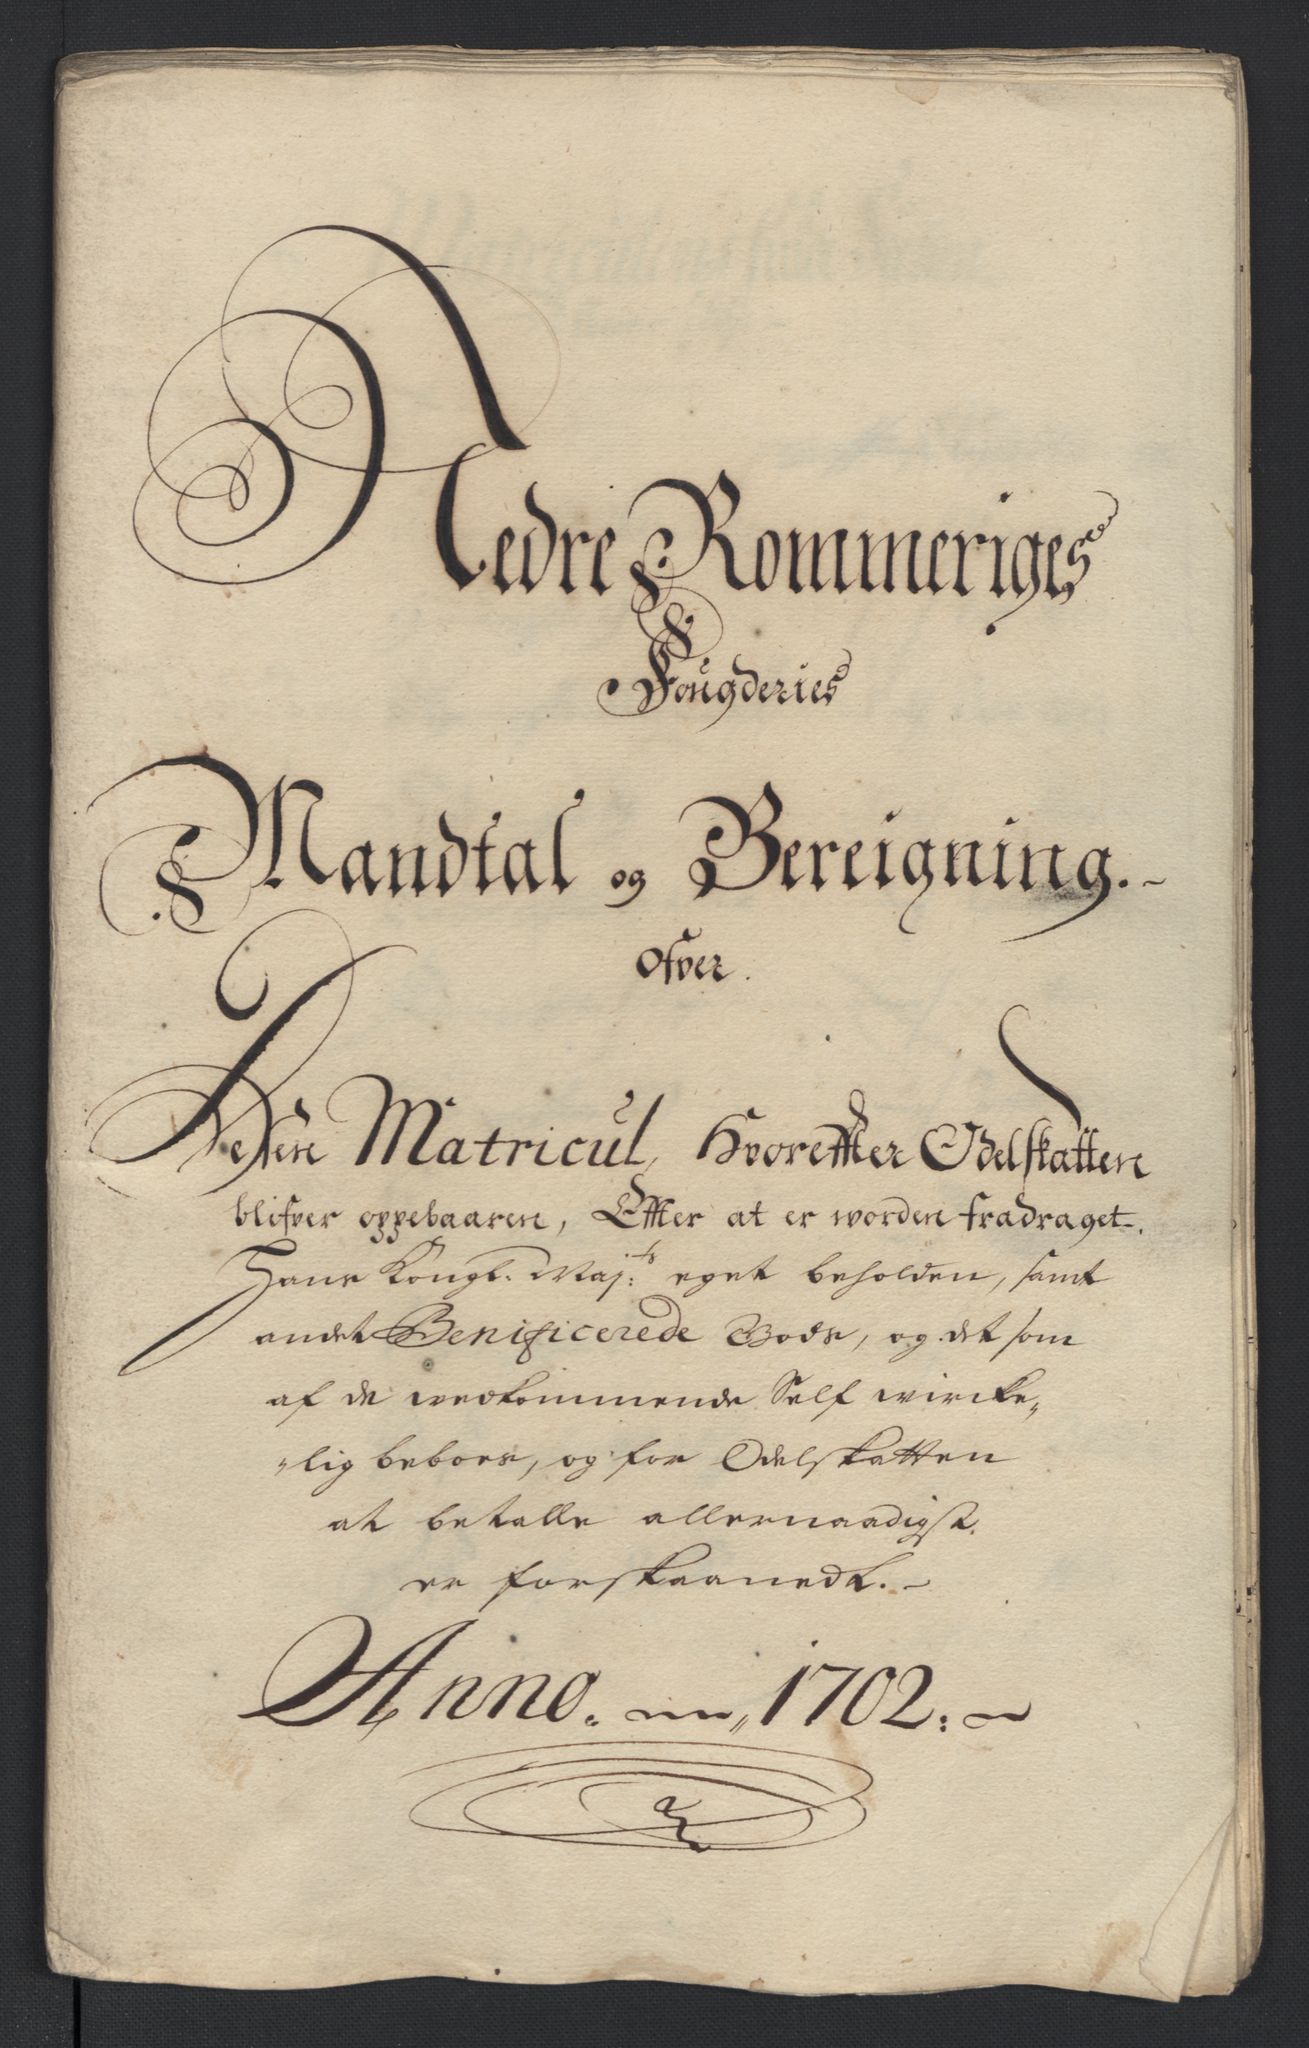 Nedre Rommeriges
Fougderies
Mandtal og Bereigning.
Ofver.
Matricul, Hvoreffter Odelskatten
blifver oppebaaren, Effter at er worden fradraget.
Hans Kongl: Maj:ts eget beholden, samt
andet Benificerede Gods, og det som
af de wedkommende Self wircke„
„lig beboes, og for Odelskatten
at betalle allernaadigst.
er forskaanedt.
Anno. 1702.